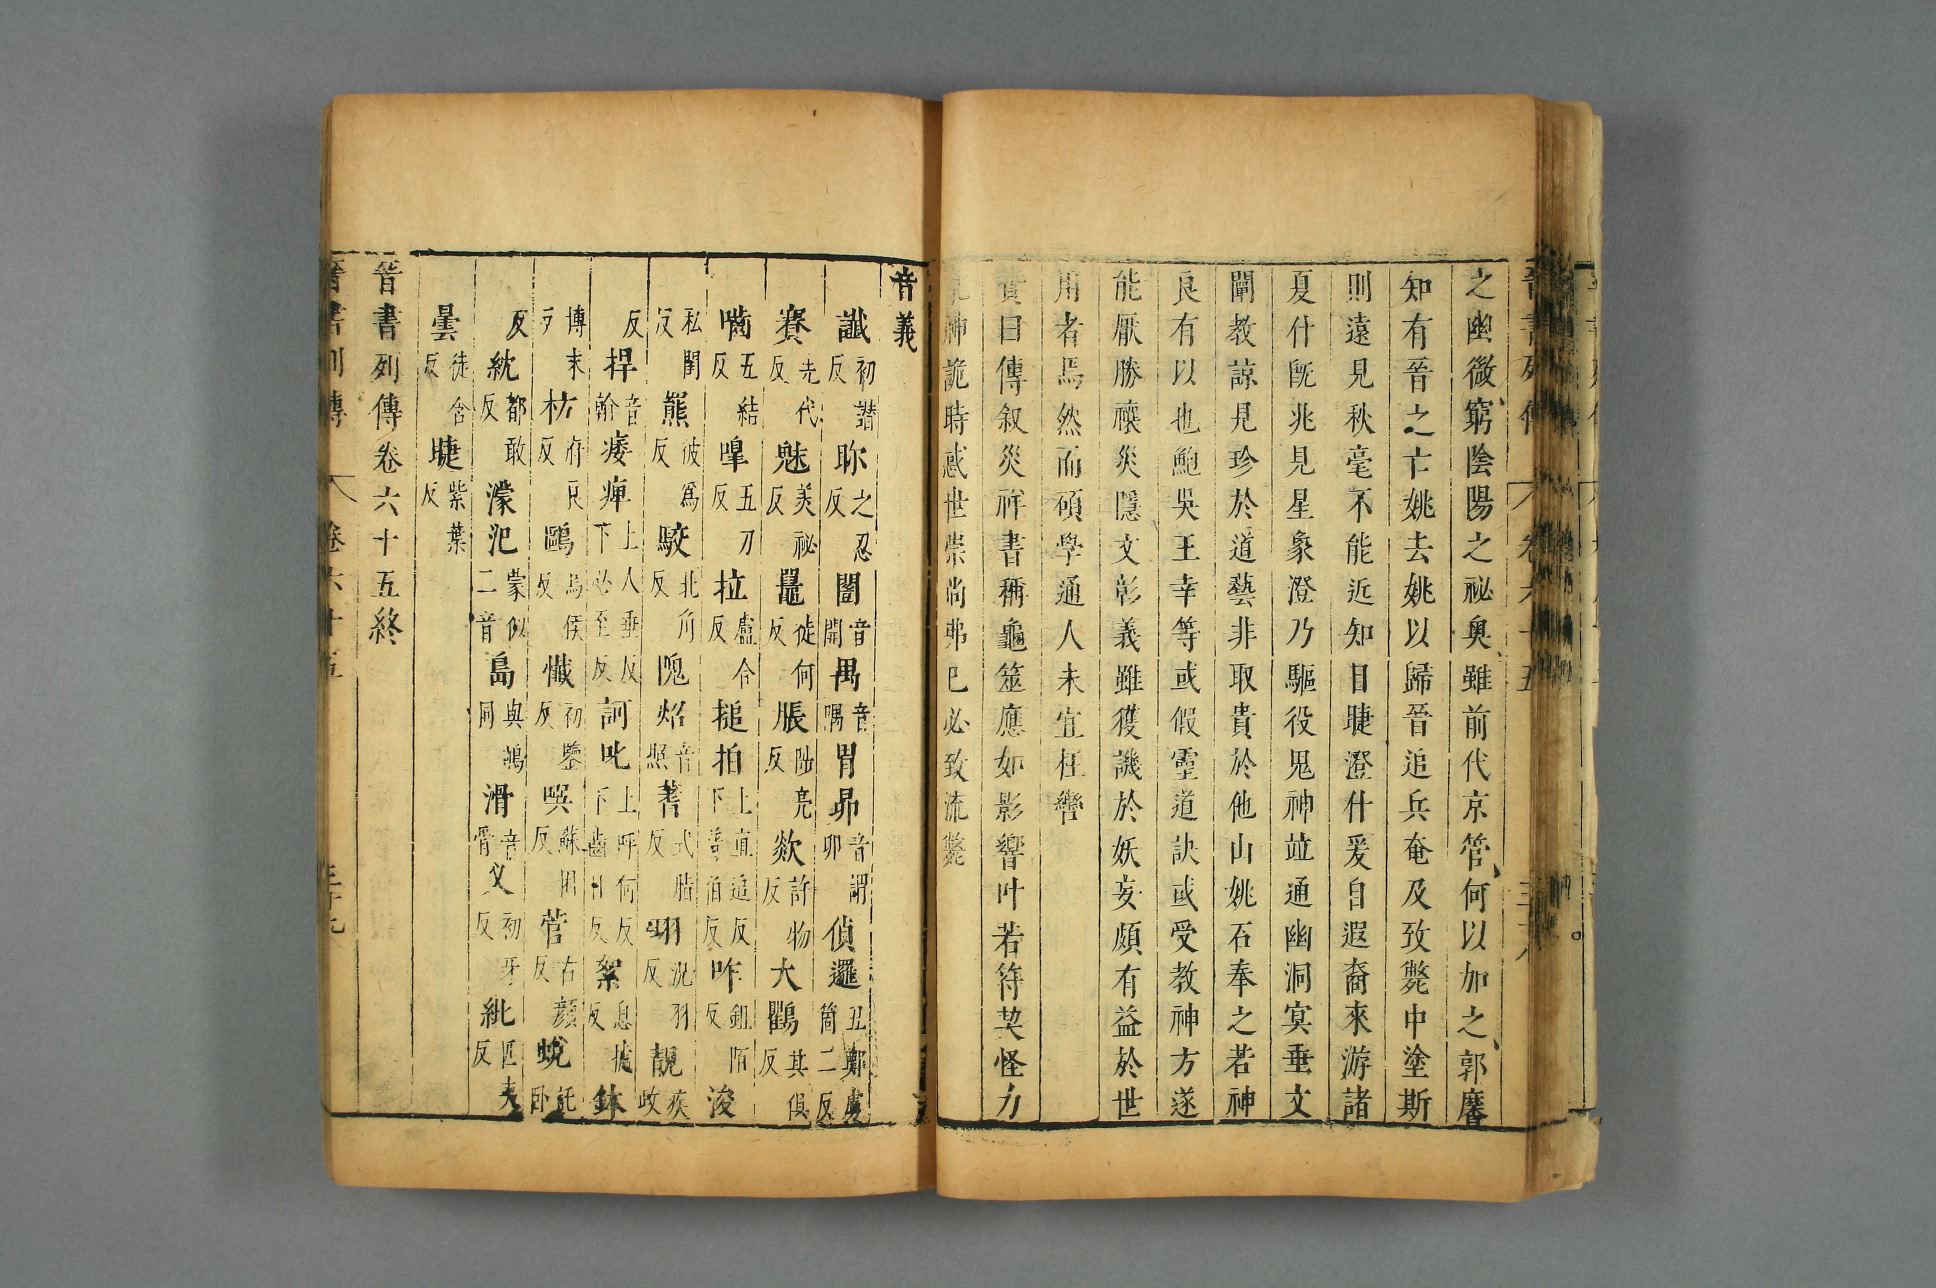 之幽微窮陰陽之祕奧雖前代京管何以加之郭黁
知有晉之亡姚去姚以歸晉追兵奄及致斃中塗斯
則遠見秋毫不能近知目睫澄什爰自遐裔來游諸
夏什旣兆見星象澄乃驅役鬼神竝通幽洞冥垂文
闡教諒見珍於道藝非取貴於他山姚石奉之若神
良有以也鮑吳王幸等或假靈道訣或受教神方遂
能厭勝禳災隱文彰義雖獲譏於妖妄頗有益於世
用者焉然而碩學通人未宜枉轡
贊曰傳叙災祥書稱龜筮應如影響叶若符契怪力
神詭時惑世崇尚弗已必致流斃
音義
讖初譖反 聄之忍反 闓音開 禺音隅 胃昴音謂卯 偵邏丑鄭盧箇二反
賽先代反 魅美祕反 鼉徒何反 脹陟亮反 欻許物反 大鸜其俱反
嚙五結反 嘷五刀反 拉盧合反 搥拍上直追反下普伯反 咋鉏陌反 浚
私閏反 熊彼爲反 駮北角反 隗炤音照 蓍式脂反 翈況羽反 靚疾政
反 捍音翰 痿痺上人垂反下必至反 訶叱上呼何反下齒日反 絮息據反 鉢
博末反 枋府良反 鷗烏侯反 懺初鑒反 噀蘇困反 菅古顏反 蛻託卧
反 紞都敢反 濛汜蒙似二音 島與㠀同 滑音骨 叉初牙反 紕匹夷反
曇徒含反 睫紫葉反
晉書列傳卷六十五終
晉書列傳 卷六十五 三十九